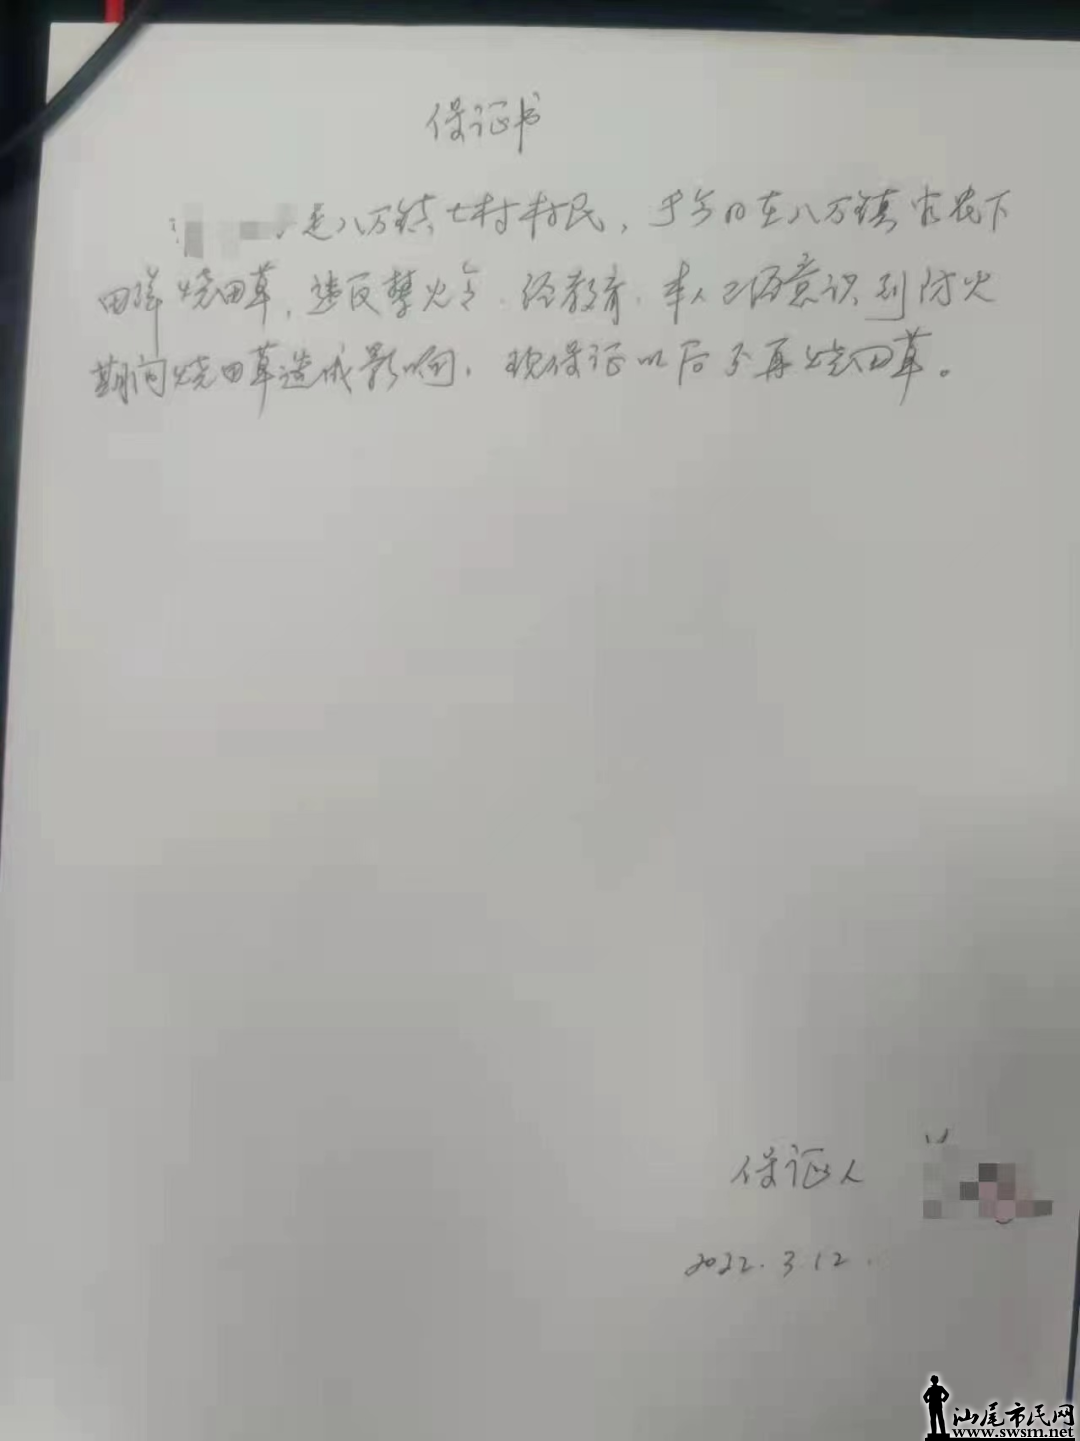 保证书
是八万镇上村村民，于今日在八万镇农下
田洋烧田草，违反禁火令，经教育，本人已经意识到防火
期间烧田草造成影响，现保证以后不再烧田草。
保证人
2022.3.12.
汕尾市民网
www.swsm.net